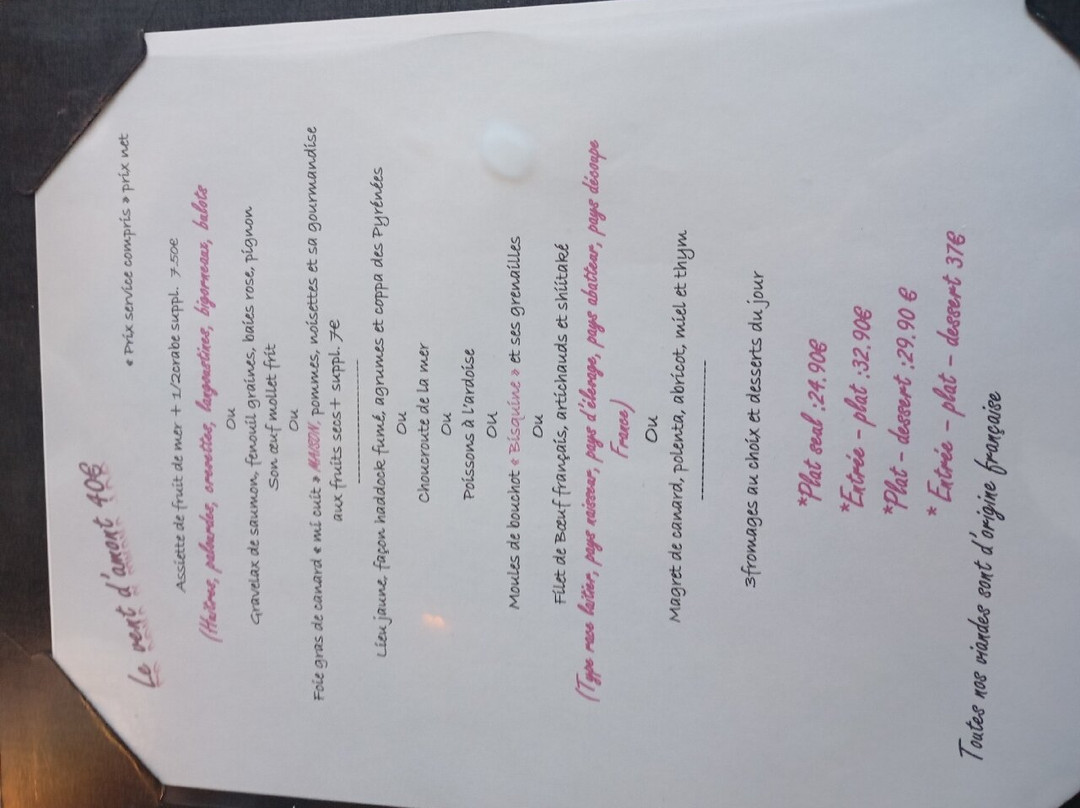 Le vent d'amont 40€
« Prix service compris » prix net
Assiette de fruit de mer + 1/2crabe suppl. 7.50€
(Huîtres, palourdes, crevettes, langoustines, bigorneaux, bulots
Ou
Gravelax de saumon, fenouil graines, baies rose, pignon
Son œuf mollet frit
Ou
Foie gras de canard « mi cuit » MAISON, pommes, noisettes et sa gourmandise
aux fruits secs+ suppl. 7€
Lieu jaune, façon haddock fumé, agrumes et coppa des Pyrénées
Ou
Choucroute de la mer
Ou
Poissons à l'ardoise
Ou
Moules de bouchot « Bisquine » et ses grenailles
Ou
Filet de Bœuf français, artichauts et shiitaké
(Type race laitier, pays naisseur, pays d'élevage, pays abatteur, pays découpe
France)
Ou
Magret de canard, polenta, abricot, miel et thym
3fromages au choix et desserts du jour
*Plat seul :24.90€
*Entrée – plat :32.90€
*Plat – dessert :29.90 €
* Entrée – plat – dessert 37€
Toutes nos viandes sont d'origine française